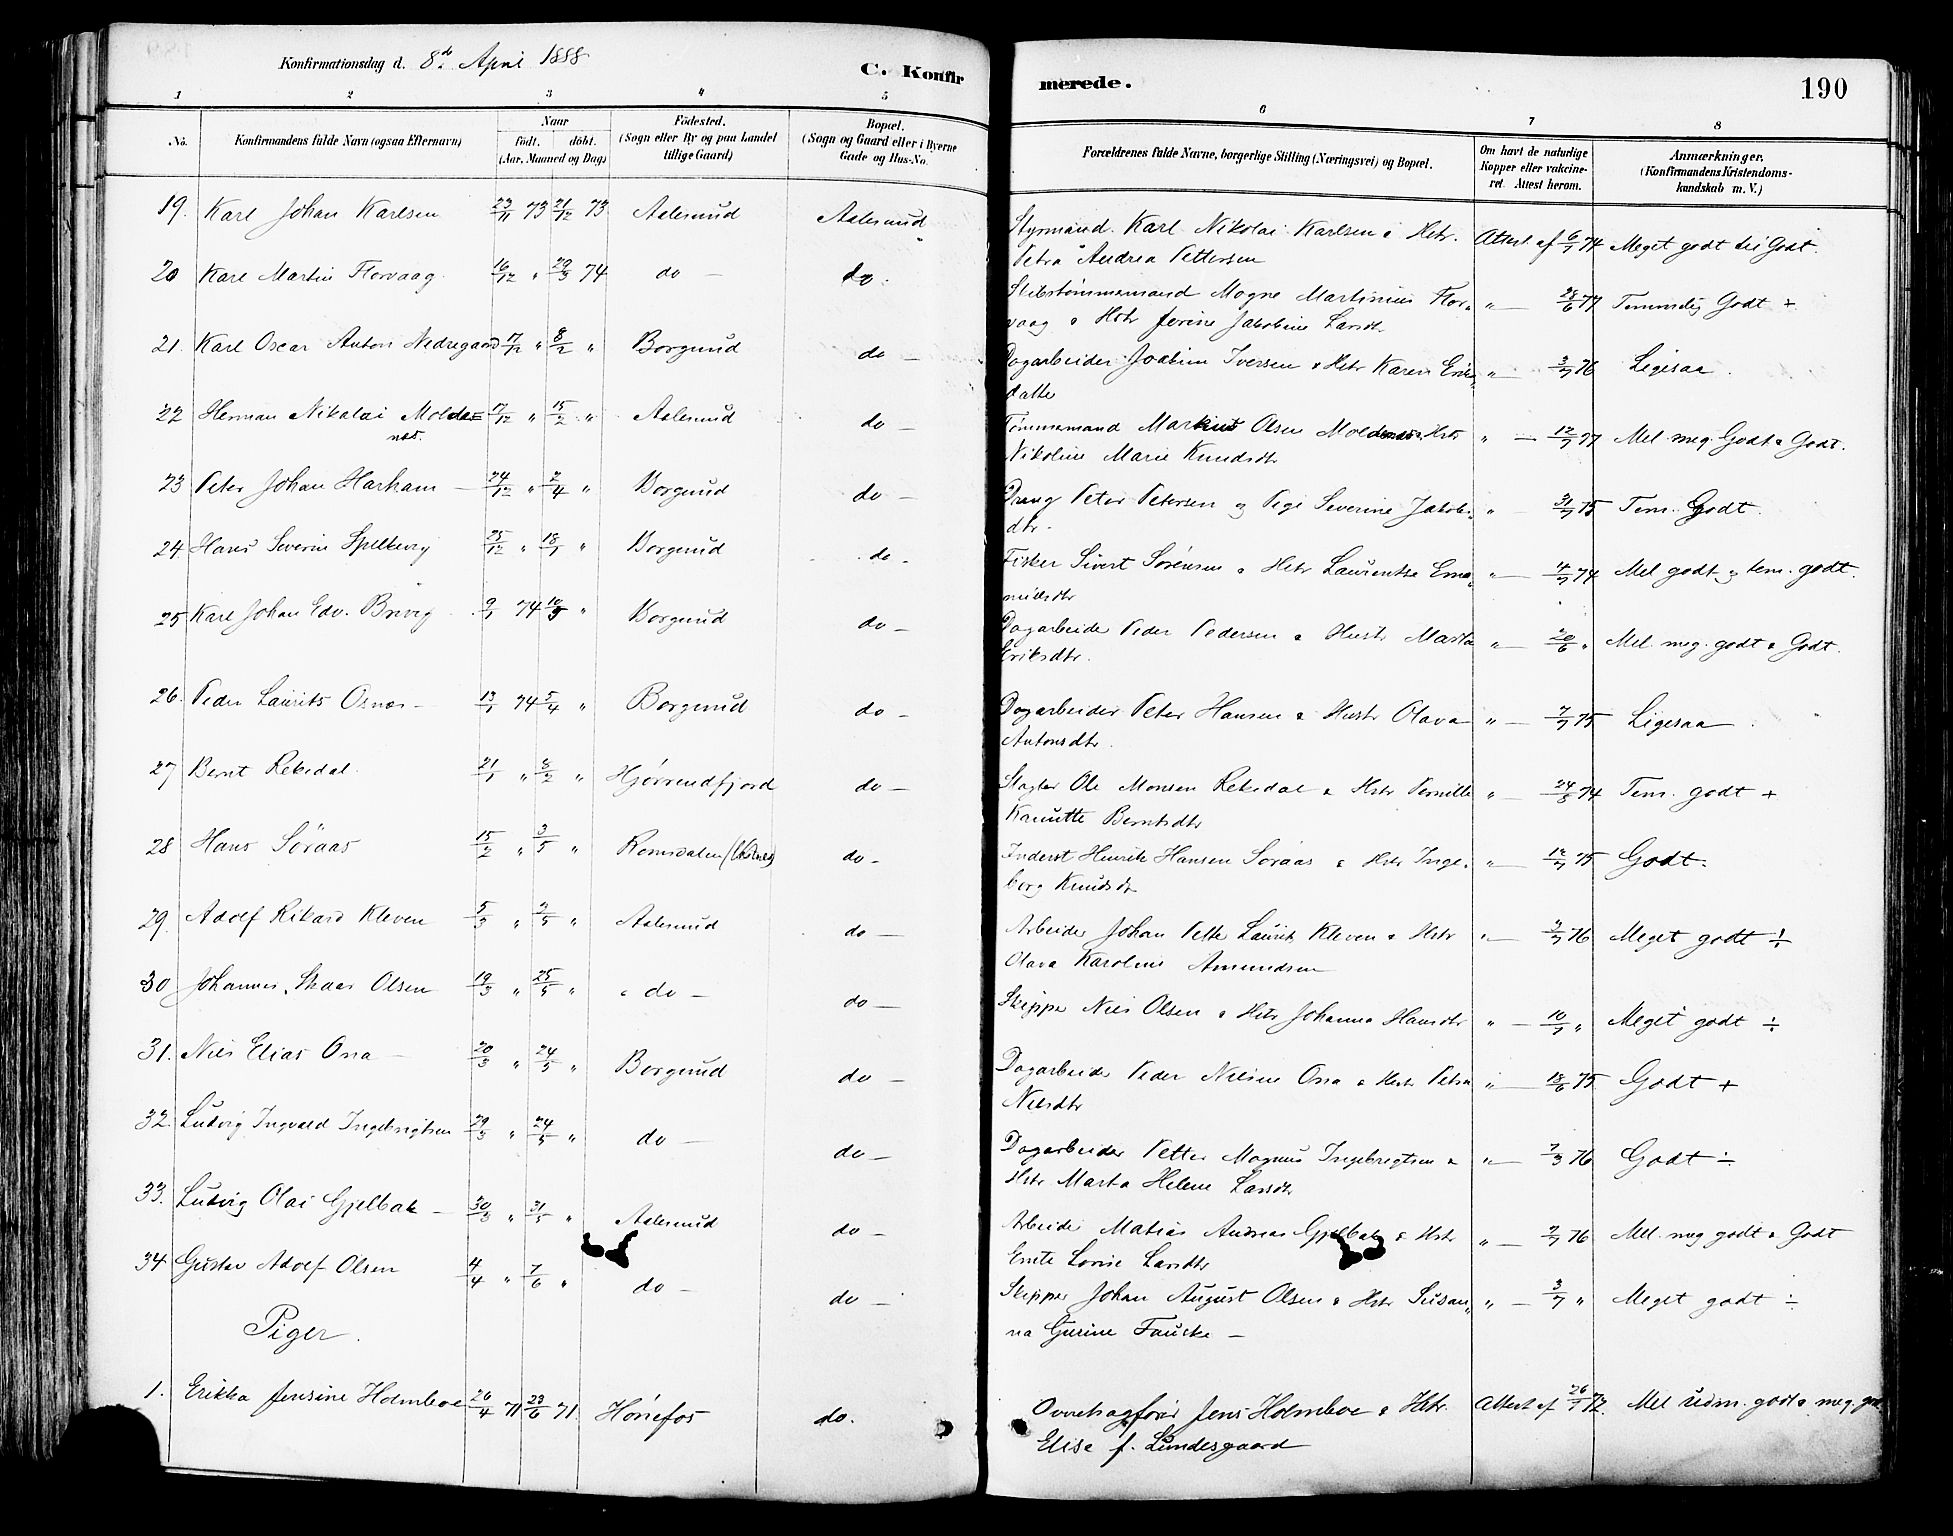 Konfirmationsdag d. 8de April 1888
C. Konfirmerede.
190
1 2 3 4 5 6 7 8
No. Konfirmandens fulde Navn (ogsaa Efternavn) Naar födt. döbt. (Aar, Maaned og Dag) Födested. (Sogn eller By og paa Landet tillige Gaard) Bopæl. (Sogn og Gaard eller i Byerne Gade og Hus-No. Forældrenes fulde Navne, borgerlige Stilling (Næringsvei) og Bopæl. Om havt de naturlige Kopper eller vakcineret. Attest herom. Anmærkninger. (Konfirmandens Kristendomskundskab m. V.)
19. Karl Johan Karlsen 23/11 73 21/12 73 Aalesund Aalesund Styrmand Karl Nikolai Karlsen & Hstr. Attest af 6/7 74 Meget godt til Godt.
Petra Andrea Pettersen
20 Karl Martin Florvaag 16/12 " 29/3 74 do — do. Skibstømmermand Mogne Martinius Flor- " — 28/6 77 Temmelig Godt +
vaag & Hstr Jerine Jakobine Larsdtr
21. Karl Oscar Anton Nedregaard 17/12 " 8/2 " Borgund do — Dagarbeider Joakim Iversen & Hstr Karen Eriks- " — 3/7 76 Ligesaa
datter
22 Herman Nikolai Moldæ= 17/12 " 15/2 " Aalesund do — Tømmermand Markus Olsen Moldenæs & Hstr " — 12/7 77 Mel. meg. Godt & Godt.
næs. Nikoline Marie Knudsdtr
23 Peter Johan Harham — 24/12 " 2/4 " Borgund do — Dreng Peter Petersen og Pige Severine Jakobs- " 31/7 75 Tem. Godt.
dtr.
24. Hans Severin Spilkevig 25/12 " 18/1 " Borgund do. Fisker Sivert Sørensen & Hstr Laurentse Ema- " — 4/7 74 Mel godt og tem. godt.
nuelsdtr
25 Karl Johan Edv. Brivig 9/1 74 10/3 " Borgund do — Dagarbeider Peder Pedersen & Hustr Marta " — 20/6 " Mel. meg. godt & Godt.
Eriksdtr.
26. Peder Laurits Osnes — 13/1 74 5/4 " Borgund do — Dagarbeider Peter Hansen & Hustr Olava " — 7/7 75 Ligesaa
Antonsdtr.
27 Bernt Rekdal. 21/1 " 8/2 " Hjørrendfjord do — Slagter Ole Monsen Rekdal & Hstr Pernille " — 24/8 74 Tem. godt +
Kanutte Berntsdtr
28 Hans Søraas 15/2 " 3/5 " Romsdalen do — Inderst Henrik Hansen Søraas & Hstr Inge- " — 12/7 75 Godt.
borg Knudsdtr
29. Adolf Rikard Kleven 5/3 " 2/5 " Aalesund do — Arbeider Johan Petter Laurits Kleven & Hstr " — 2/7 76 Meget godt ÷
Olava Karoline Amundsen
30 Johannes Skaar Olsen 19/3 " 25/5 " do — do — Skipper Nils Olsen & Hstr Johanna Hansdtr " — 10/7 " Meget godt ÷
31. Nils Elias Ona — 20/3 " 24/5 " Borgund do — Dagarbeider Peder Nilsen Ona & Hstr Petra " — 18/6 75 Godt +
Nilsdtr
32. Ludvig Ingvald Ingebrigtsen 29/3 " 24/5 " do — do — Dagarbeider Petter Magnus Ingebrigtsen & " — 7/3 76 Godt ÷
Hstr Marta Helene Larsdtr
33. Ludvig Olai Gjelbak — 30/3 " 31/5 " Aalesund do — Arbeider Matias Andreas Gjelbak & Hstr " — 2/7 76 Mel. meg godt & Godt
Grete Lovise Larsdtr
34 Gustav Adolf Olsen 4/4 " 7/6 " do — do — Skipper Johan August Olsen & Hstr Susan- " — 3/7 " Meget godt ÷
na Gurine Faucke —
Piger.
1. Erikka Jensine Holmboe 26/4 71 23/6 71. Hønefos do. Overtragfører Jens Holmboe & Hstr. Attest af 26/7 72. Mel udm. godt & meg. godt
Elise f. Lundesgaard